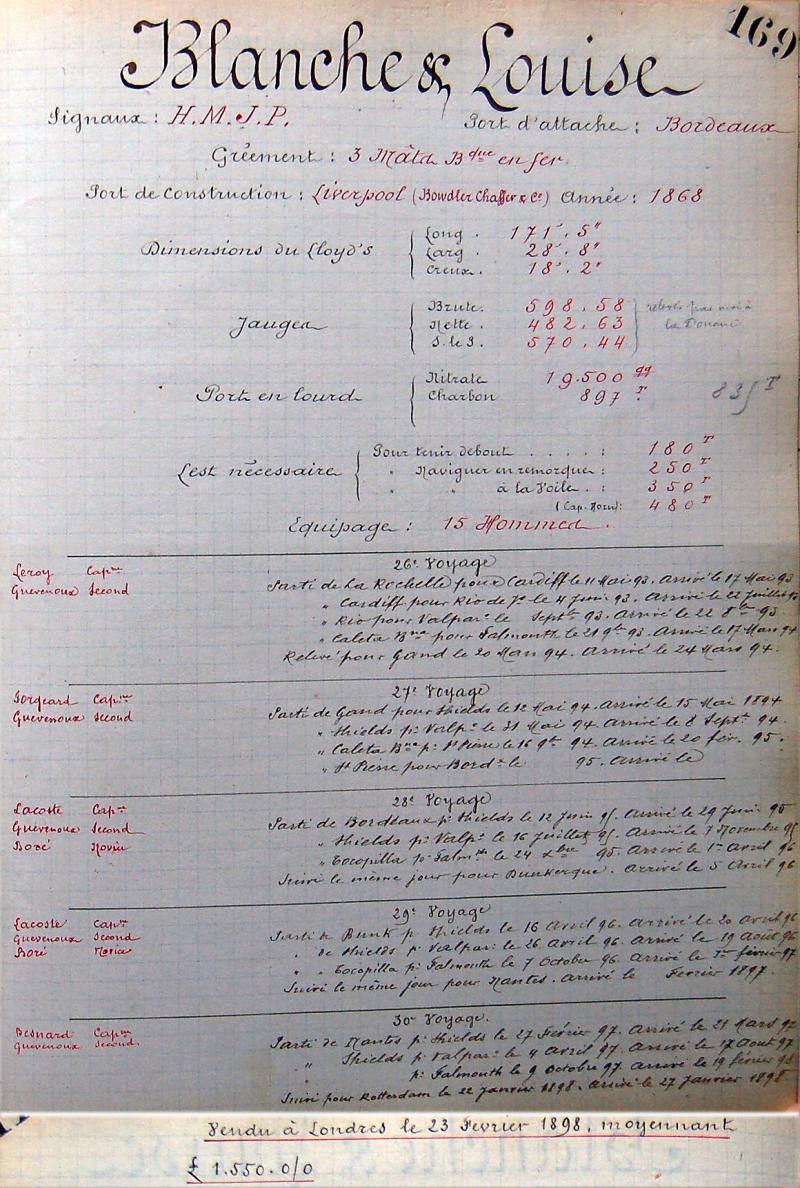 169
Blanche & Louise
Signaux : H.M.J.P. Port d'attache : Bordeaux
Gréement : 3 Mâts Bque en fer
Port de Construction : Liverpool (Bowdler Chaffer & Co) Année : 1868
Dimensions du Lloyd's
Long . 171'. 5"
Larg . 28'. 8"
Creux . 18'. 2"
Jauges
Brute . 598.58
Nette . 482.63
S. le P. 570.44
la Douane
Port en lourd
Nitrate 19.500 qq
Charbon 897 T.
835 T
Lest nécessaire
Pour tenir debout . . . . . : 180 T
" Naviguer en remorque : 250 T
" " à la Voile . . : 350 T
(Cap. Horn) : 480 T
Equipage : 15 Hommes .
Leroy Capne
Guevenoux Second
26e Voyage
Parti de La Rochelle pour Cardiff le 11 Mai 93. Arrivé le 17 Mai 93
" Cardiff pour Rio de Jo le 4 Juin 93. Arrivé le 22 Juillet 93
" Rio pour Valparo le Septbre 93. Arrivé le 22 8bre 93.
" Caleta Bna pour Falmouth le 21 9bre 93. Arrivé le 17 Mars 94
Relevé pour Gand le 20 Mars 94. Arrivé le 24 Mars 94.
Capne
Guevenoux Second
27e Voyage
Parti de Gand pour Shields le 12 Mai 94. Arrivé le 15 Mai 1894
" Shields pr Valpo le 31 Mai 94. Arrivé le 8 Septre 94.
" Caleta Bna pr St Pierre le 16 9bre 94. Arrivé le 20 fév. 95.
" St Pierre pour Bordx le 95. Arrivé le
Lacoste Capne
Guevenoux Second
Boré Novice
28e Voyage
Parti de Bordeaux pr Shields le 12 Juin 95. Arrivé le 29 Juin 95
" Shields pr Valpo le 16 Juillet 95. Arrivé le 7 Novembre 95
" Tocopilla pr Falmth le 24 Xbre 95. Arrivé le 1er Avril 96
Suivi le même jour pour Dunkerque. Arrivé le 5 Avril 96
Lacoste Capne
Guevenoux Second
Boré Novice
29e Voyage
Parti de Dunk pr Shields le 16 Avril 96. Arrivé le 20 Avril 96
" de Shields pr Valparo le 26 Avril 96. Arrivé le 19 Août 96
" Tocopilla pr Falmouth le 7 October 96. Arrivé le 1er février 97
Suivi le même jour pour Nantes. Arrivé le Fevrier 1897.
Besnard Capne
Guevenoux Second.
30e Voyage.
Parti de Nantes pr Shields le 27 Février 97. Arrivé le 21 Mars 97
" Shields pr Valparo le 4 Avril 97. Arrivé le 17 Août 97
" pr Falmouth le 9 Octobre 97. Arrivé le 19 février 98
Suivi pour Rotterdam le 22 Janvier 1898. Arrivé le 27 Janvier 1898
Vendu à Londres le 23 Fevrier 1898, moyennant
£ 1.550.0/0